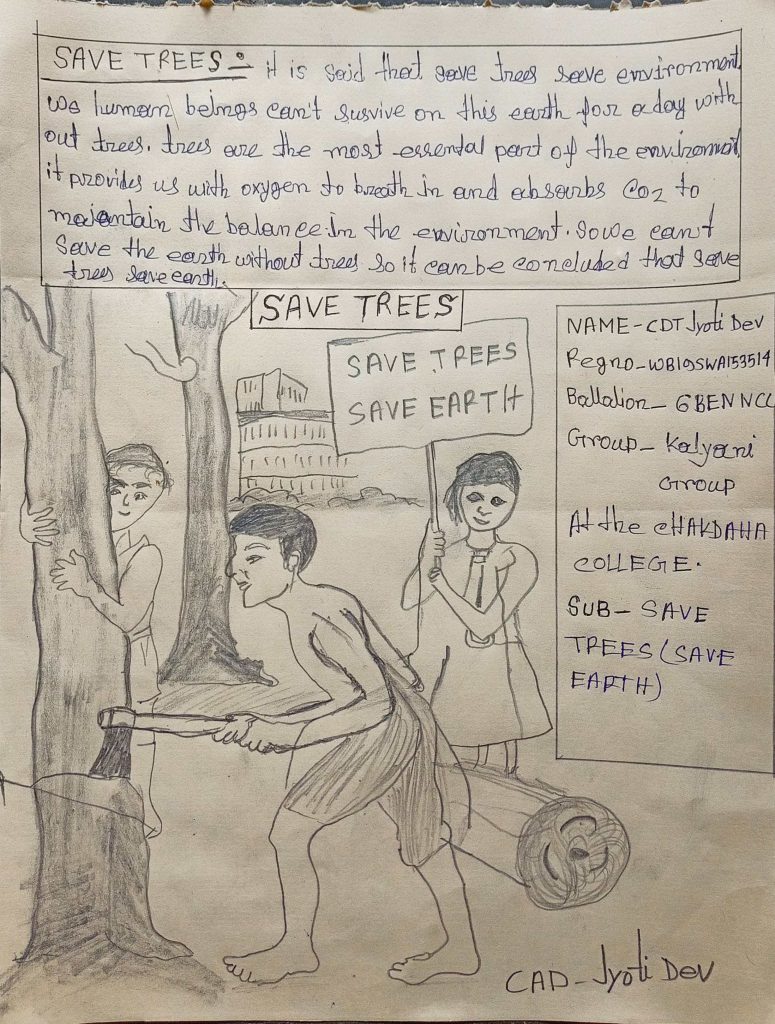 SAVE TREES:- it is said that save trees save environment.
we human beings can't survive on this earth for a day with
out trees. trees are the most essental part of the environment
it provides us with oxygen to breath in and absorbs CO2 to
maintain the balance in the environment. So we can't
Save the earth without trees so it can be concluded that save
trees save earth.
SAVE TREES
SAVE TREES
SAVE EARTH
NAME-CDT Jyoti Dev
Regno-WB19SWA153514
Battalion-6BENNCC
Group-Kalyani
Group
At the CHAKDAHA
COLLEGE.
SUB-SAVE
TREES (SAVE
EARTH)
CAD-Jyoti Dev